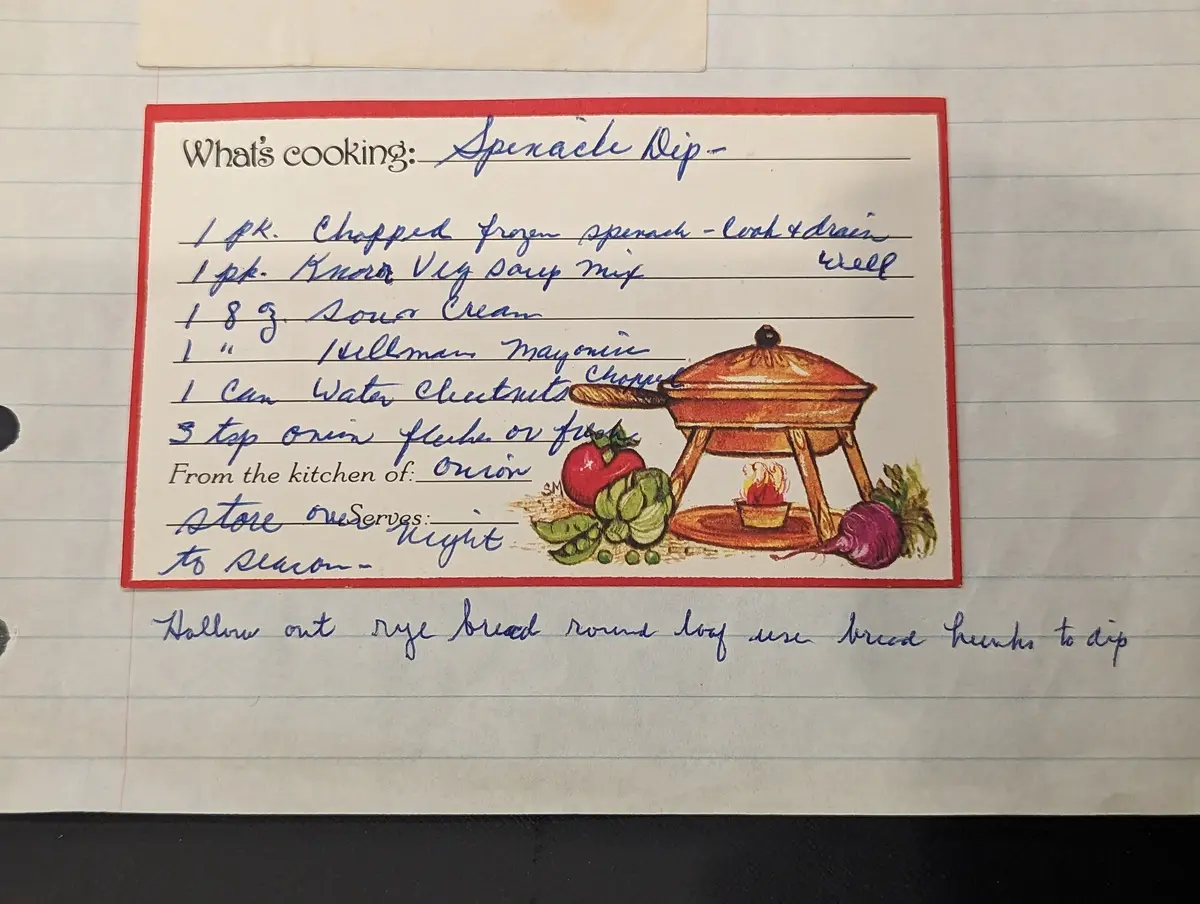 What's cooking: Spinach Dip -
1 pk. Chopped frozen spinach - Cook & drain
well
1 pk. Knorr Veg Soup Mix
1 8 oz. Sour Cream
1 " Hellman Mayonise
1 Can Water Chestnuts Chopped
3 tsp onion flakes or fresh
From the kitchen of: onion
store over night
Serves:
to season -
Hollow out rye bread round loaf use bread hunks to dip
SM